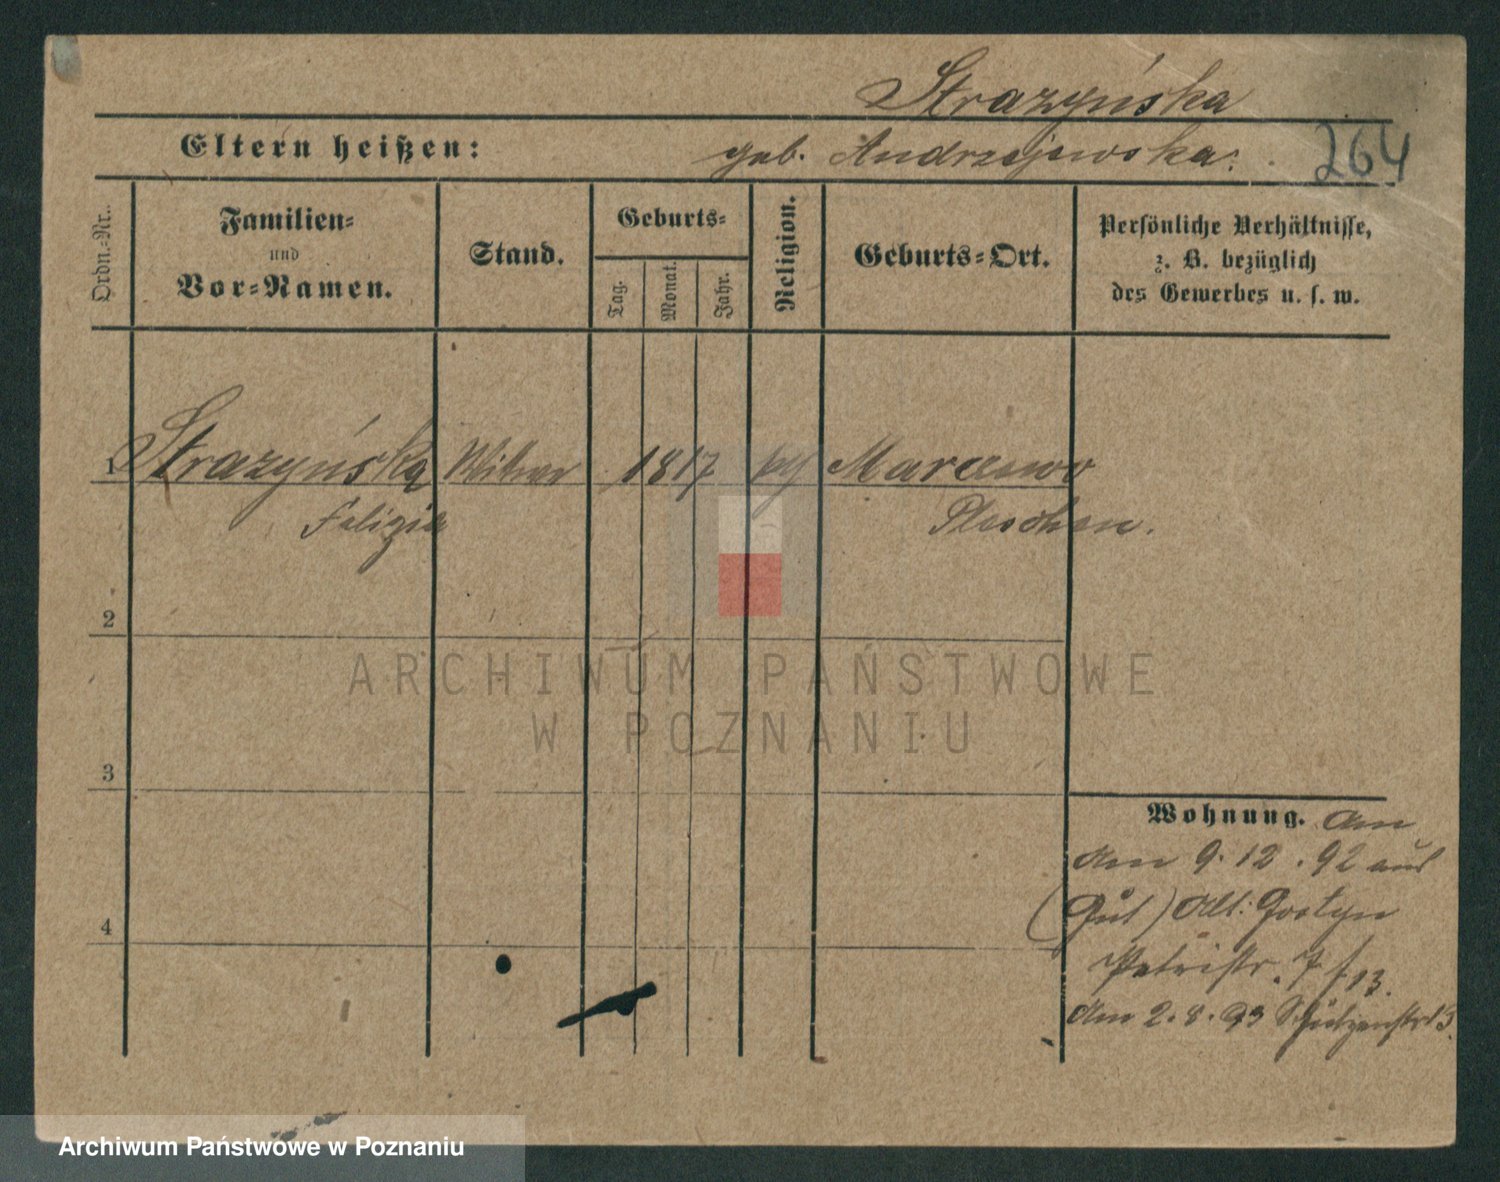 Strazyńska
Eltern heißen: geb. Andrzejewska. 264
Ordn.-Nr. Familien- und Vor-Namen. Stand. Geburts- Tag. Monat. Jahr. Religion. Geburts-Ort. Persönliche Verhältnisse, z. B. bezüglich des Gewerbes u. s. w.
1 Strazyńska 1817
Felizia Pleschen.
2
ARCHIWUM PAŃSTWOWE
W POZNANIU
3
Wohnung. Am
den 9.12.92 aus
(Gut) Alt: Gostyn
Petristr. 7
4
Am 2.8.93 Schützenstr
Archiwum Państwowe w Poznaniu